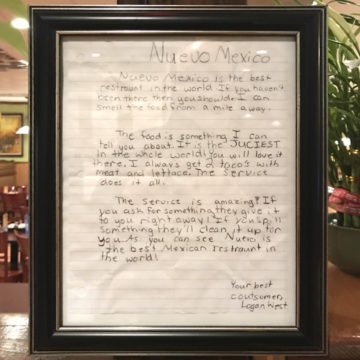 Nuevo Mexico
Nuevo Mexico is the best
restraunt in the world If you haven't
been there then you should. I can
smell the food from a mile away.
The food is something I can
tell you about. It is the JUCIEST
in the whole world! You will love it
there. I always get 2 taco's with
meat and lettace. The service
does it all.
The service is amazing! If
you ask for something they give it
to you right away! If you spill
something they'll clean it up for
you. As you can see Nuevo is
the best Mexican restraunt in
the world!
Your best
coutsomer,
Logan West